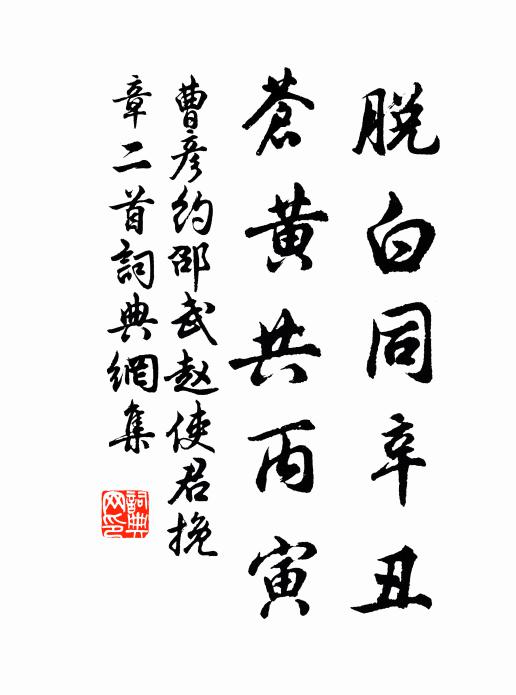 脱白同辛丑
蒼黄共丙寅
曹彦約邵武赵使君挽
章二首詞典網集
詞典网印